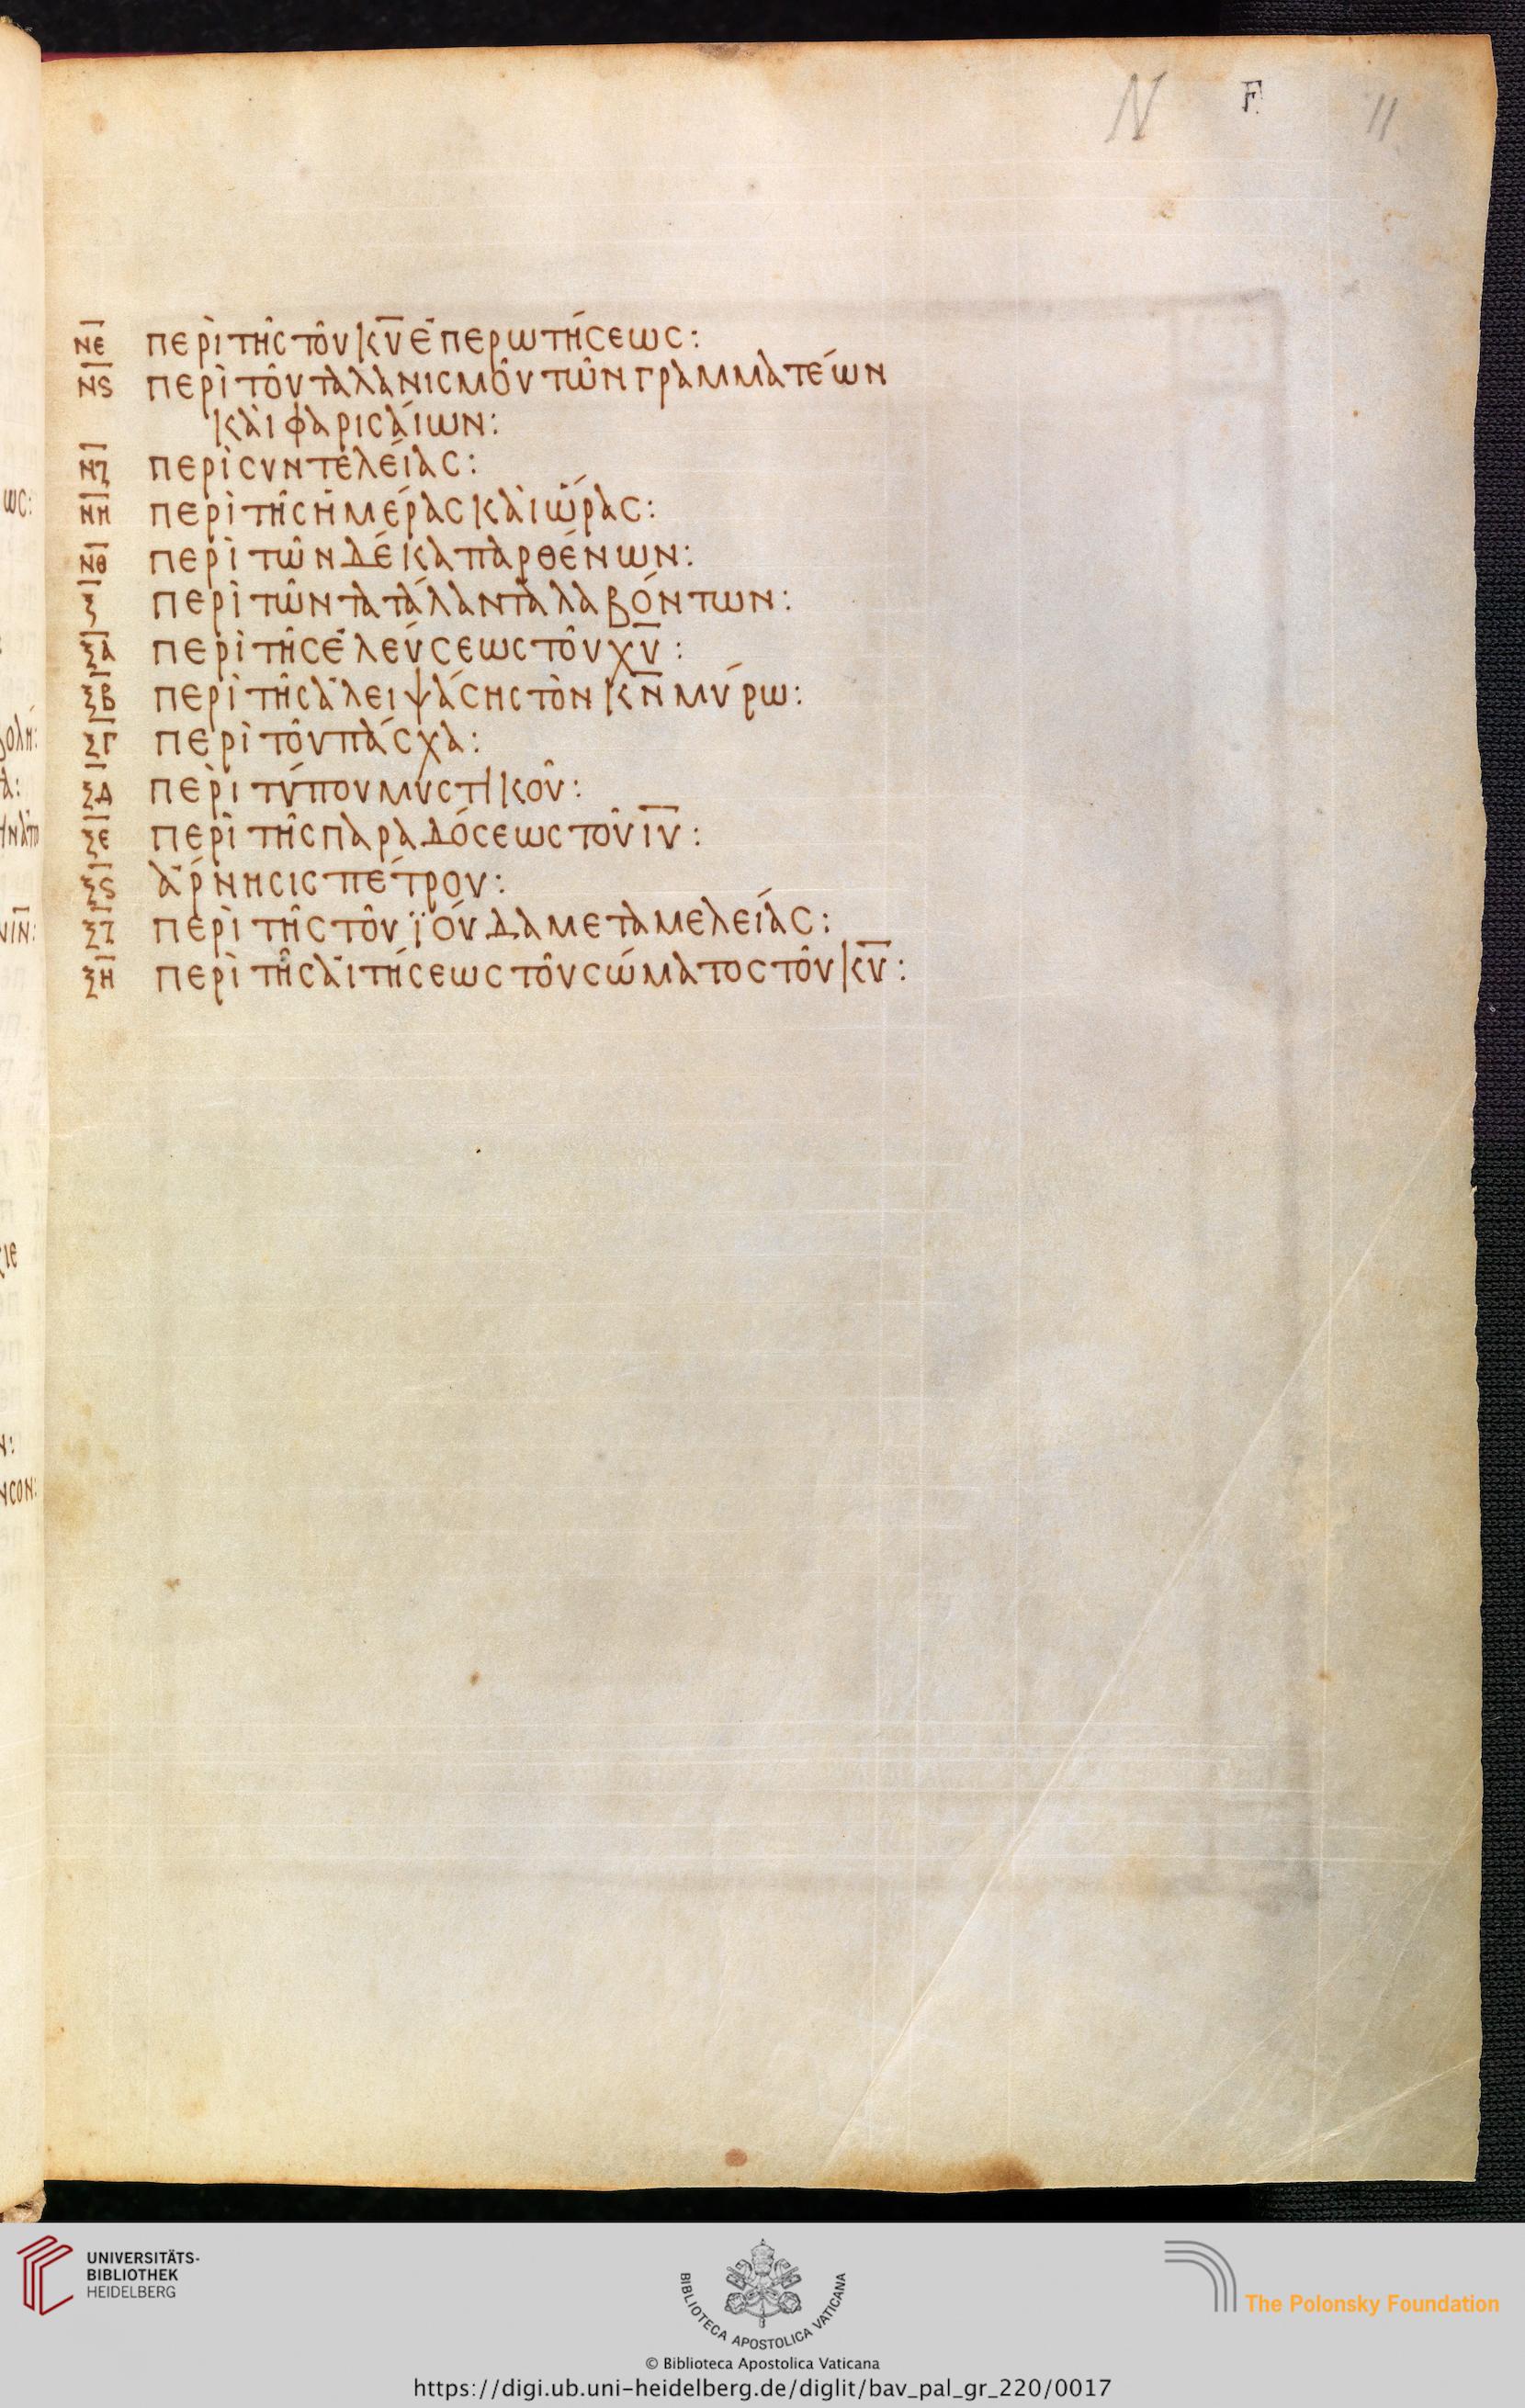 N F 11
ν̅ε̅ περὶ τῆς τοῦ κ̅υ̅ ἐπερωτήσεως:
ν̅ς̅ περὶ τοῦ ταλανισμοῦ τῶν γραμματέων
καὶ φαρισαίων:
ν̅ζ̅ περὶ συντελείας:
ν̅η̅ περὶ τῆς ἡμέρας καὶ ὥρας:
ν̅θ̅ περὶ τῶν δέκα παρθένων:
ξ̅ περὶ τῶν τὰ τάλαντα λαβόντων:
ξ̅α̅ περὶ τῆς ἐλεύσεως τοῦ χ̅υ̅:
ξ̅β̅ περὶ τῆς ἀλειψάσης τὸν κ̅ν̅ μύρω:
ξ̅γ̅ περὶ τοῦ πάσχα:
ξ̅δ̅ περὶ τύπου μυστικοῦ:
ξ̅ε̅ περὶ τῆς παραδόσεως τοῦ ι̅υ̅:
ξ̅ς̅ ἄρνησις πέτρου:
ξ̅ζ̅ περὶ τῆς τοῦ ϊούδα μεταμελείας:
ξ̅η̅ περὶ τῆς αἰτήσεως τοῦ σώματος τοῦ κ̅υ̅:
UNIVERSITÄTS-
BIBLIOTHEK
HEIDELBERG
BIBLIOTECA APOSTOLICA VATICANA
The Polonsky Foundation
© Biblioteca Apostolica Vaticana
https://digi.ub.uni-heidelberg.de/diglit/bav_pal_gr_220/0017